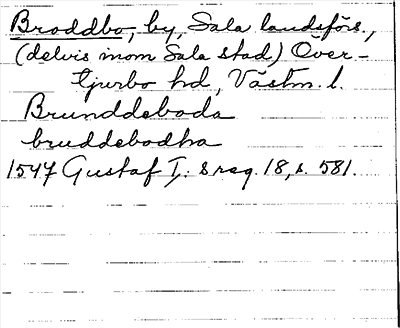 Broddbo, by, Sala landsförs.,
(delvis inom Sala stad) Över-
tjurbo hd, Västm. l.
Brunddeboda
bruddebodha
1547 Gustaf I:s reg. 18, s. 581.